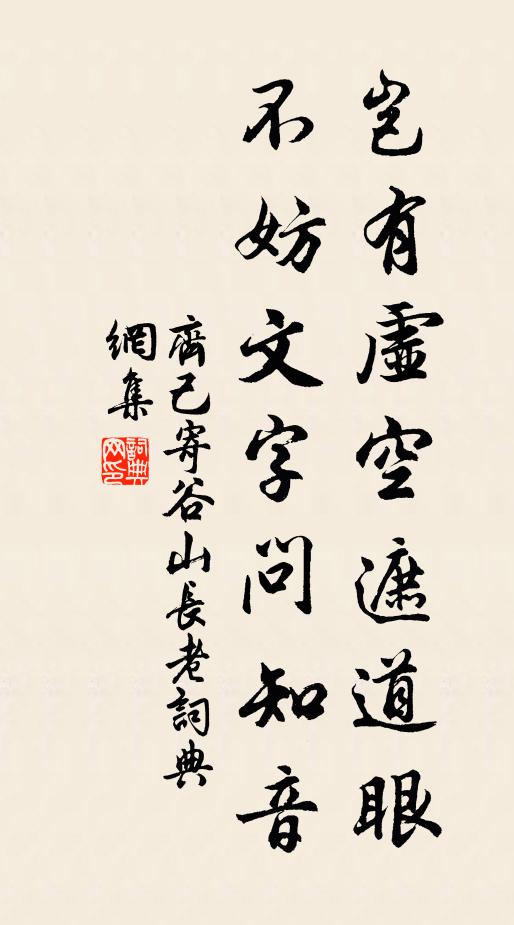 豈有虛空遮道眼
不妨文字問知音
齊己寄谷山長老詞典
網集
詞典網印